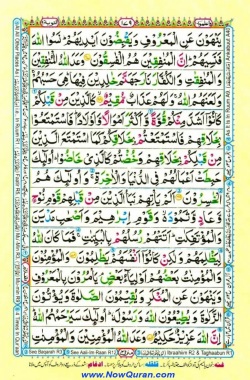 التوبة ٩
١٧٩
يَنْهَوْنَ عَنِ الْمَعْرُوْفِ وَيَقْبِضُوْنَ اَيْدِيَهُمْ نَسُوا اللّٰهَ
فَنَسِيَهُمْ اِنَّ الْمُنٰفِقِيْنَ هُمُ الْفٰسِقُوْنَ وَعَدَ اللّٰهُ الْمُنٰفِقِيْنَ
وَالْمُنٰفِقٰتِ وَالْكُفَّارَ نَارَ جَهَنَّمَ خٰلِدِيْنَ فِيْهَا هِيَ حَسْبُهُمْ
وَلَعَنَهُمُ اللّٰهُ وَلَهُمْ عَذَابٌ مُّقِيْمٌ كَالَّذِيْنَ مِنْ قَبْلِكُمْ
كَانُوْٓا اَشَدَّ مِنْكُمْ قُوَّةً وَّاَكْثَرَ اَمْوَالًا وَّاَوْلَادًا
فَاسْتَمْتَعُوْا بِخَلَاقِهِمْ فَاسْتَمْتَعْتُمْ بِخَلَاقِكُمْ كَمَا اسْتَمْتَعَ الَّذِيْنَ
مِنْ قَبْلِكُمْ بِخَلَاقِهِمْ وَخُضْتُمْ كَالَّذِيْ خَاضُوْا اُولٰٓئِكَ
حَبِطَتْ اَعْمَالُهُمْ فِي الدُّنْيَا وَالْاٰخِرَةِ وَاُولٰٓئِكَ هُمُ
الْخٰسِرُوْنَ اَلَمْ يَاْتِهِمْ نَبَاُ الَّذِيْنَ مِنْ قَبْلِهِمْ قَوْمِ نُوْحٍ
وَّعَادٍ وَّثَمُوْدَ وَقَوْمِ اِبْرٰهِيْمَ وَاَصْحٰبِ مَدْيَنَ
وَالْمُؤْتَفِكٰتِ اَتَتْهُمْ رُسُلُهُمْ بِالْبَيِّنٰتِ فَمَا كَانَ اللّٰهُ
لِيَظْلِمَهُمْ وَلٰكِنْ كَانُوْٓا اَنْفُسَهُمْ يَظْلِمُوْنَ وَالْمُؤْمِنُوْنَ
وَالْمُؤْمِنٰتُ بَعْضُهُمْ اَوْلِيَآءُ بَعْضٍ يَاْمُرُوْنَ بِالْمَعْرُوْفِ
وَيَنْهَوْنَ عَنِ الْمُنْكَرِ وَيُقِيْمُوْنَ الصَّلٰوةَ وَيُؤْتُوْنَ
الزَّكٰوةَ وَيُطِيْعُوْنَ اللّٰهَ وَرَسُوْلَهٗ اُولٰٓئِكَ سَيَرْحَمُهُمُ اللّٰهُ
اِنَّ اللّٰهَ عَزِيْزٌ حَكِيْمٌ وَعَدَ اللّٰهُ الْمُؤْمِنِيْنَ وَالْمُؤْمِنٰتِ
See Baqarah R3
See Aal-Im Raan R1
Ibraahiim R2 & Taghaabun R1
www.NowQuran.com